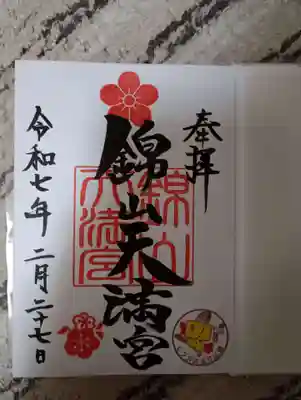 奉拝
錦山天満宮
令和七年 二月二十七日